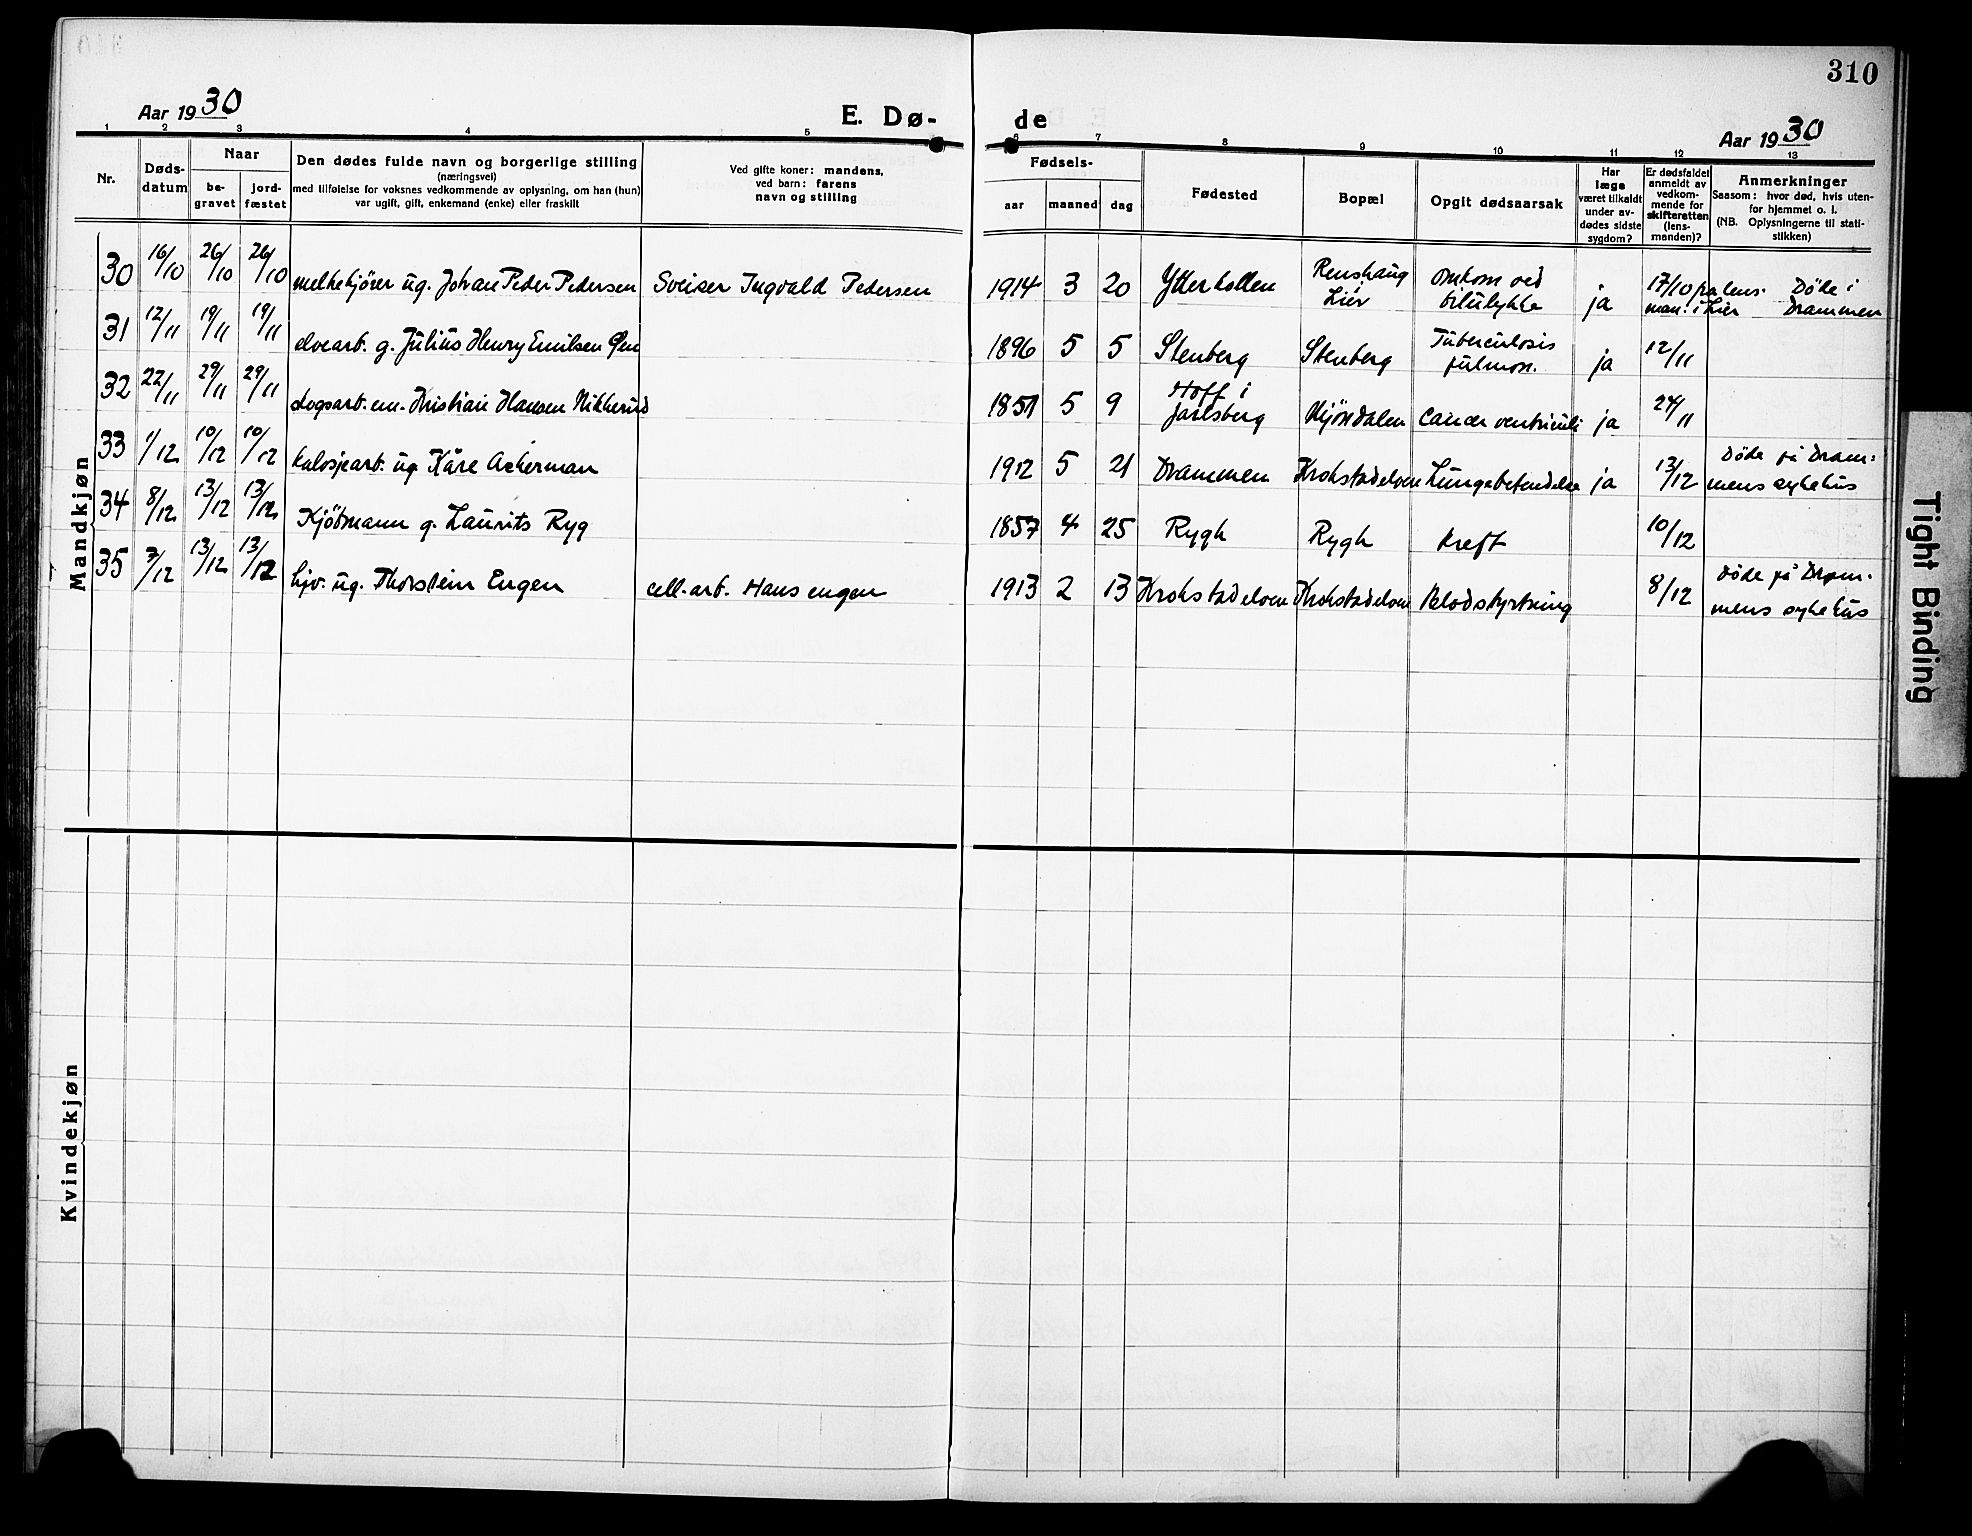 310
Aar 1930
E. Dø-
de
Aar 1930
1 2 3 4 5
6 7 8 9 10 11 12 13
Nr.
Døds-
datum
Naar
be-
gravet
jord-
fæstet
Den dødes fulde navn og borgerlige stilling
(næringsvei)
med tilføielse for voksnes vedkommende av oplysning, om han (hun)
var ugift, gift, enkemand (enke) eller fraskilt
Ved gifte koner: mandens,
ved barn: farens
navn og stilling
Fødsels-
aar
maaned
dag
Fødested
Bopæl
Opgit dødsaarsak
Har
læge
været tilkaldt
under av-
dødes sidste
sygdom?
Er dødsfaldet
anmeldt av
vedkom-
mende for
skifteretten
(lens-
manden)?
Anmerkninger
Saasom: hvor død, hvis uten-
for hjemmet o. l.
(NB. Oplysningerne til stati-
stikken)
Mandkjøn
30 16/10 26/10 26/10 melkekjører ug. Johan Peder Pedersen Sveiser Ingvald Pedersen 1914 3 20 Ytterkollen Renskaug Lier Omkom ved bilulykke ja 17/10 på lens. man. i Lier Døde i Drammen
31 12/11 19/11 19/11 elvearb. g. Julius Henry Emilsen 1896 5 5 Stenberg Stenberg Tuberculosis pulmon. ja 12/11
32 22/11 29/11 29/11 em. Kristian Hansen Nikkerud 1851 5 9 Hoff i Jarlsberg Mjöndalen Cancer ventriculi ja 24/11
33 1/12 10/12 10/12 kalosjearb. ug. Kåre Ackerman 1912 5 21 Drammen Krokstadelven Lungebetendelse ja 13/12 Døde på Dram- mens sykehus
34 8/12 13/12 13/12 Kjöbmann g. Laurits Ryg 1857 4 25 Rygh Rygh Kreft 10/12
35 7/12 13/12 13/12 hjv. ug. Thorstein Engen cell.arb. Hans engen 1913 2 13 Krokstadelven Krokstadelven Blodstyrtning 8/12 Døde på Dram- mens sykehus
Kvindekjøn
Tight Binding